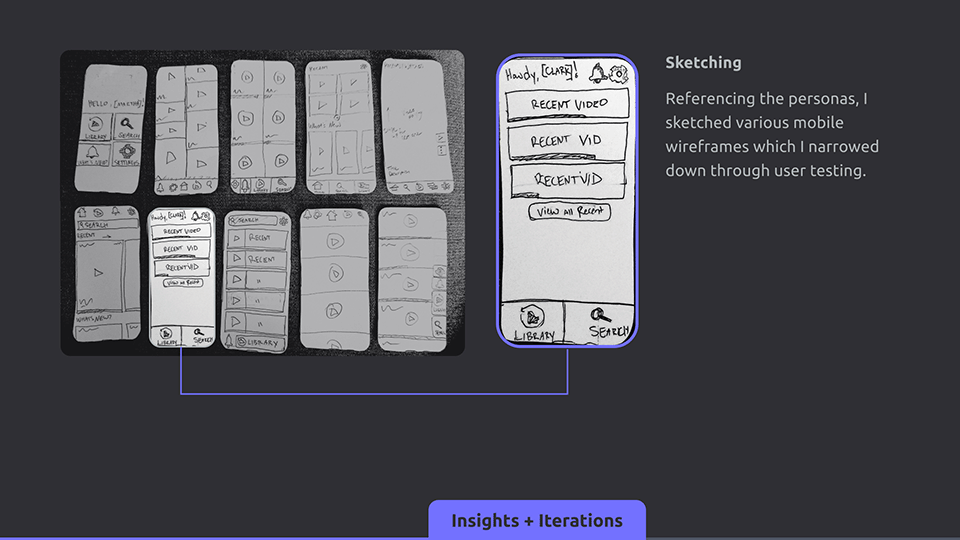 HELLO, [
LIBRARY
SEARCH
SETTINGS
LIBRARY
SEARCH
RECENT
WHAT'S NEW
SEARCH
RECENT
WHAT'S NEW?
Howdy, [CLARK]!
RECENT VIDEO
RECENT VID
RECENT VID
View All Recent
LIBRARY
SEARCH
SEARCH
RECENT
RECENT
"
"
"
LIBRARY
Howdy, [CLARK]!
RECENT VIDEO
RECENT VID
RECENT VID
View All Recent
LIBRARY
SEARCH
Sketching
Referencing the personas, I
sketched various mobile
wireframes which I narrowed
down through user testing.
Insights + Iterations